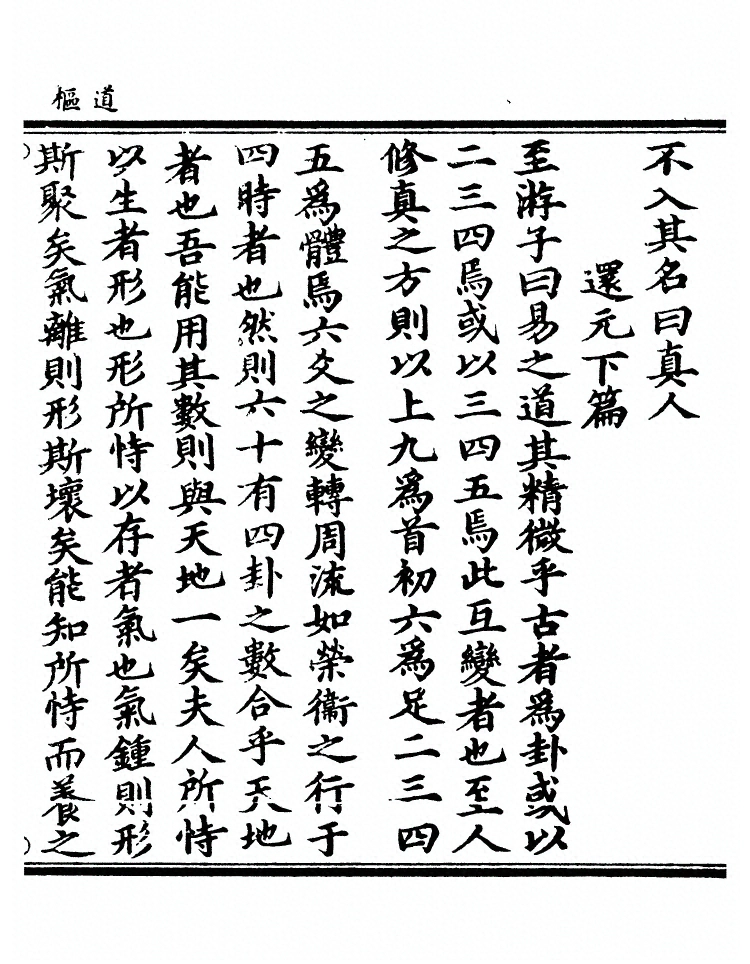 道樞
不入其名曰真人
還元下篇
至游子曰易之道其精微乎古者爲卦或以
二三四焉或以三四五焉此互變者也至人
修真之方則以上九爲首初六爲足二三四
五爲體焉六爻之變轉周流如榮衞之行于
四時者也然則六十有四卦之數合乎天地
者也吾能用其數則與天地一矣夫人所恃
以生者形也形所恃以存者氣也氣鍾則形
斯聚矣氣離則形斯壞矣能知所恃而養之